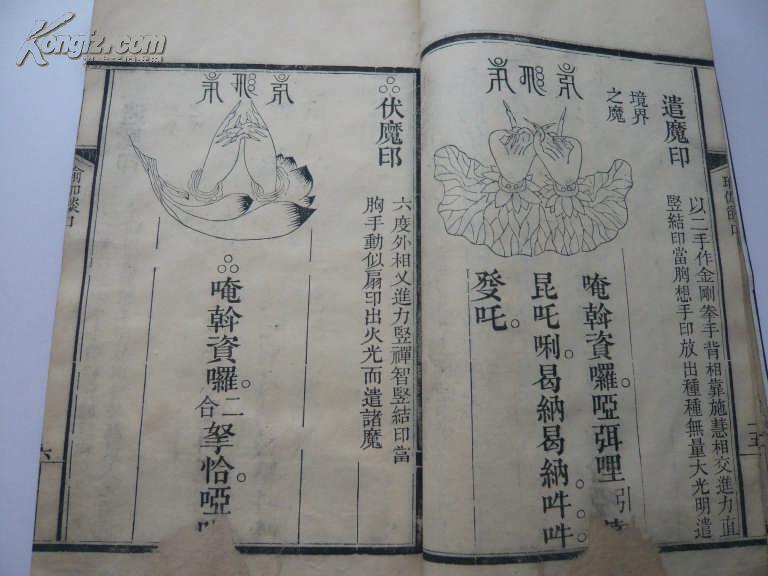 Kongfz.com
遣魔印
境界
之魔
以二手作金剛拳手背相靠施慧相交進力直
竪結印當胸想手印放出種種無量大光明遣
唵斡資囉。啞弭哩引
昆吒唎。曷納曷納吽吽
癹吒。
伏魔印
六度外相叉進力竪禪智竪結印當
胸手動似扇印出火光而遣諸魔
唵斡資囉。二合拏恰啞
六